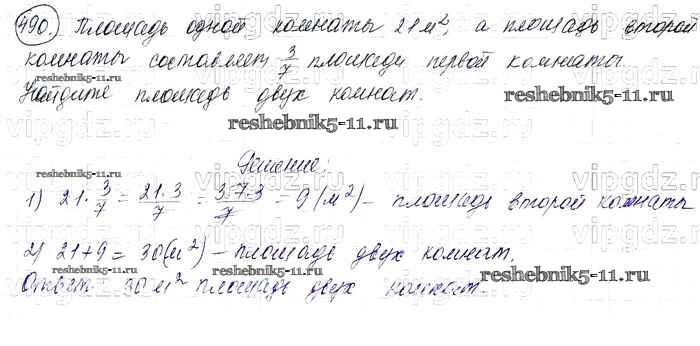 490. Площадь одной комнаты 21 м², а площадь второй
комнаты составляет 3/7 площади первой комнаты.
Найдите площадь двух комнат.
reshebnik5-11.ru
reshebnik5-11.ru
Решение:
reshebnik5-11.ru
1) 21 · 3/7 = 21·3/7 = 3·7·3/7 = 9 (м²) – площадь второй комнаты
reshebnik5-11.ru
2) 21+9 = 30 (м²) – площадь двух комнат.
reshebnik5-11.ru
reshebnik5-11.ru
Ответ 30 м² площадь двух комнат.
vipgdz.com